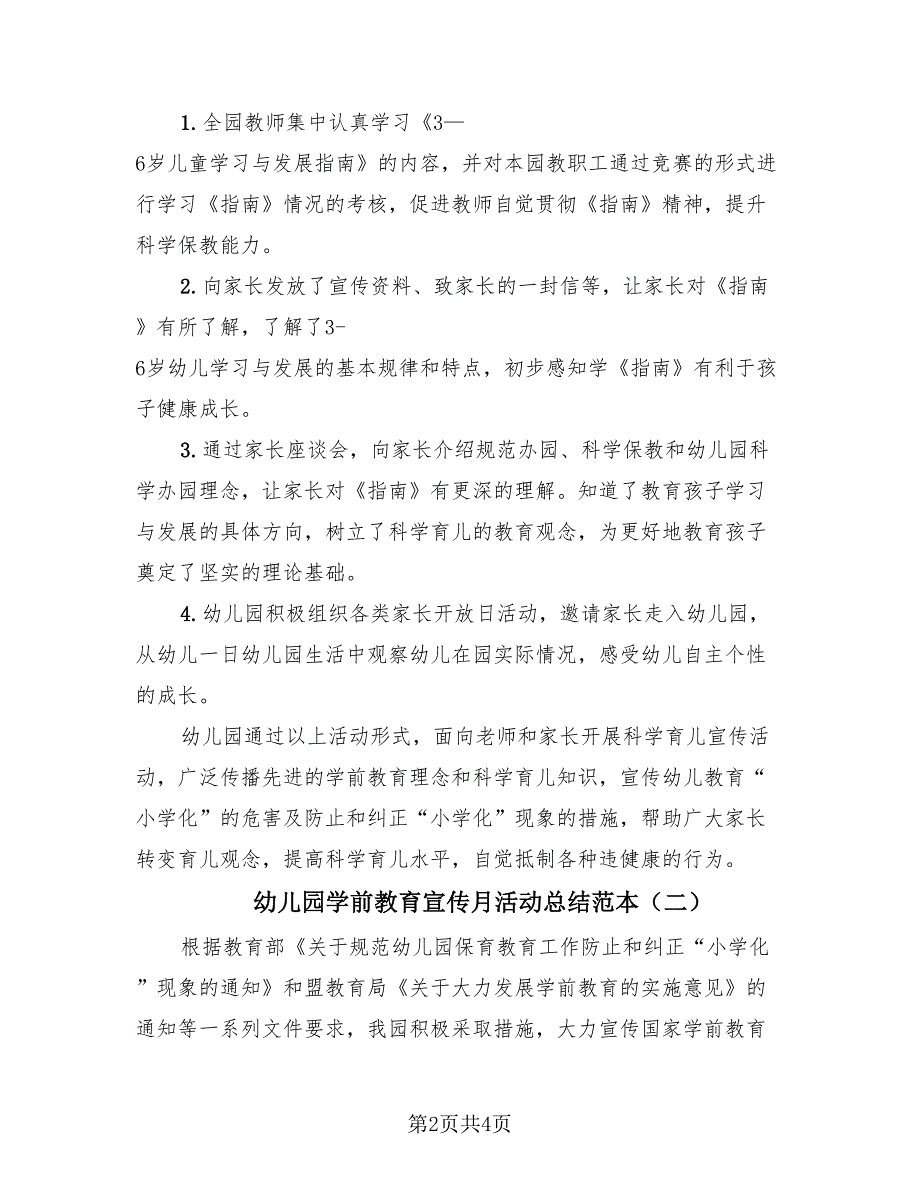 1. 全园教师集中认真学习《3—
6岁儿童学习与发展指南》的内容，并对本园教职工通过竞赛的形式进
行学习《指南》情况的考核，促进教师自觉贯彻《指南》精神，提升
科学保教能力。
2. 向家长发放了宣传资料、致家长的一封信等，让家长对《指南
》有所了解，了解了3-
6岁幼儿学习与发展的基本规律和特点，初步感知学《指南》有利于孩
子健康成长。
3. 通过家长座谈会，向家长介绍规范办园、科学保教和幼儿园科
学办园理念，让家长对《指南》有更深的理解。知道了教育孩子学习
与发展的具体方向，树立了科学育儿的教育观念，为更好地教育孩子
奠定了坚实的理论基础。
4. 幼儿园积极组织各类家长开放日活动，邀请家长走入幼儿园，
从幼儿一日幼儿园生活中观察幼儿在园实际情况，感受幼儿自主个性
的成长。
幼儿园通过以上活动形式，面向老师和家长开展科学育儿宣传活
动，广泛传播先进的学前教育理念和科学育儿知识，宣传幼儿教育“
小学化”的危害及防止和纠正“小学化”现象的措施，帮助广大家长
转变育儿观念，提高科学育儿水平，自觉抵制各种违健康的行为。
幼儿园学前教育宣传月活动总结范本（二）
根据教育部《关于规范幼儿园保育教育工作防止和纠正“小学化
”现象的通知》和盟教育局《关于大力发展学前教育的实施意见》的
通知等一系列文件要求，我园积极采取措施，大力宣传国家学前教育
第2页共4页